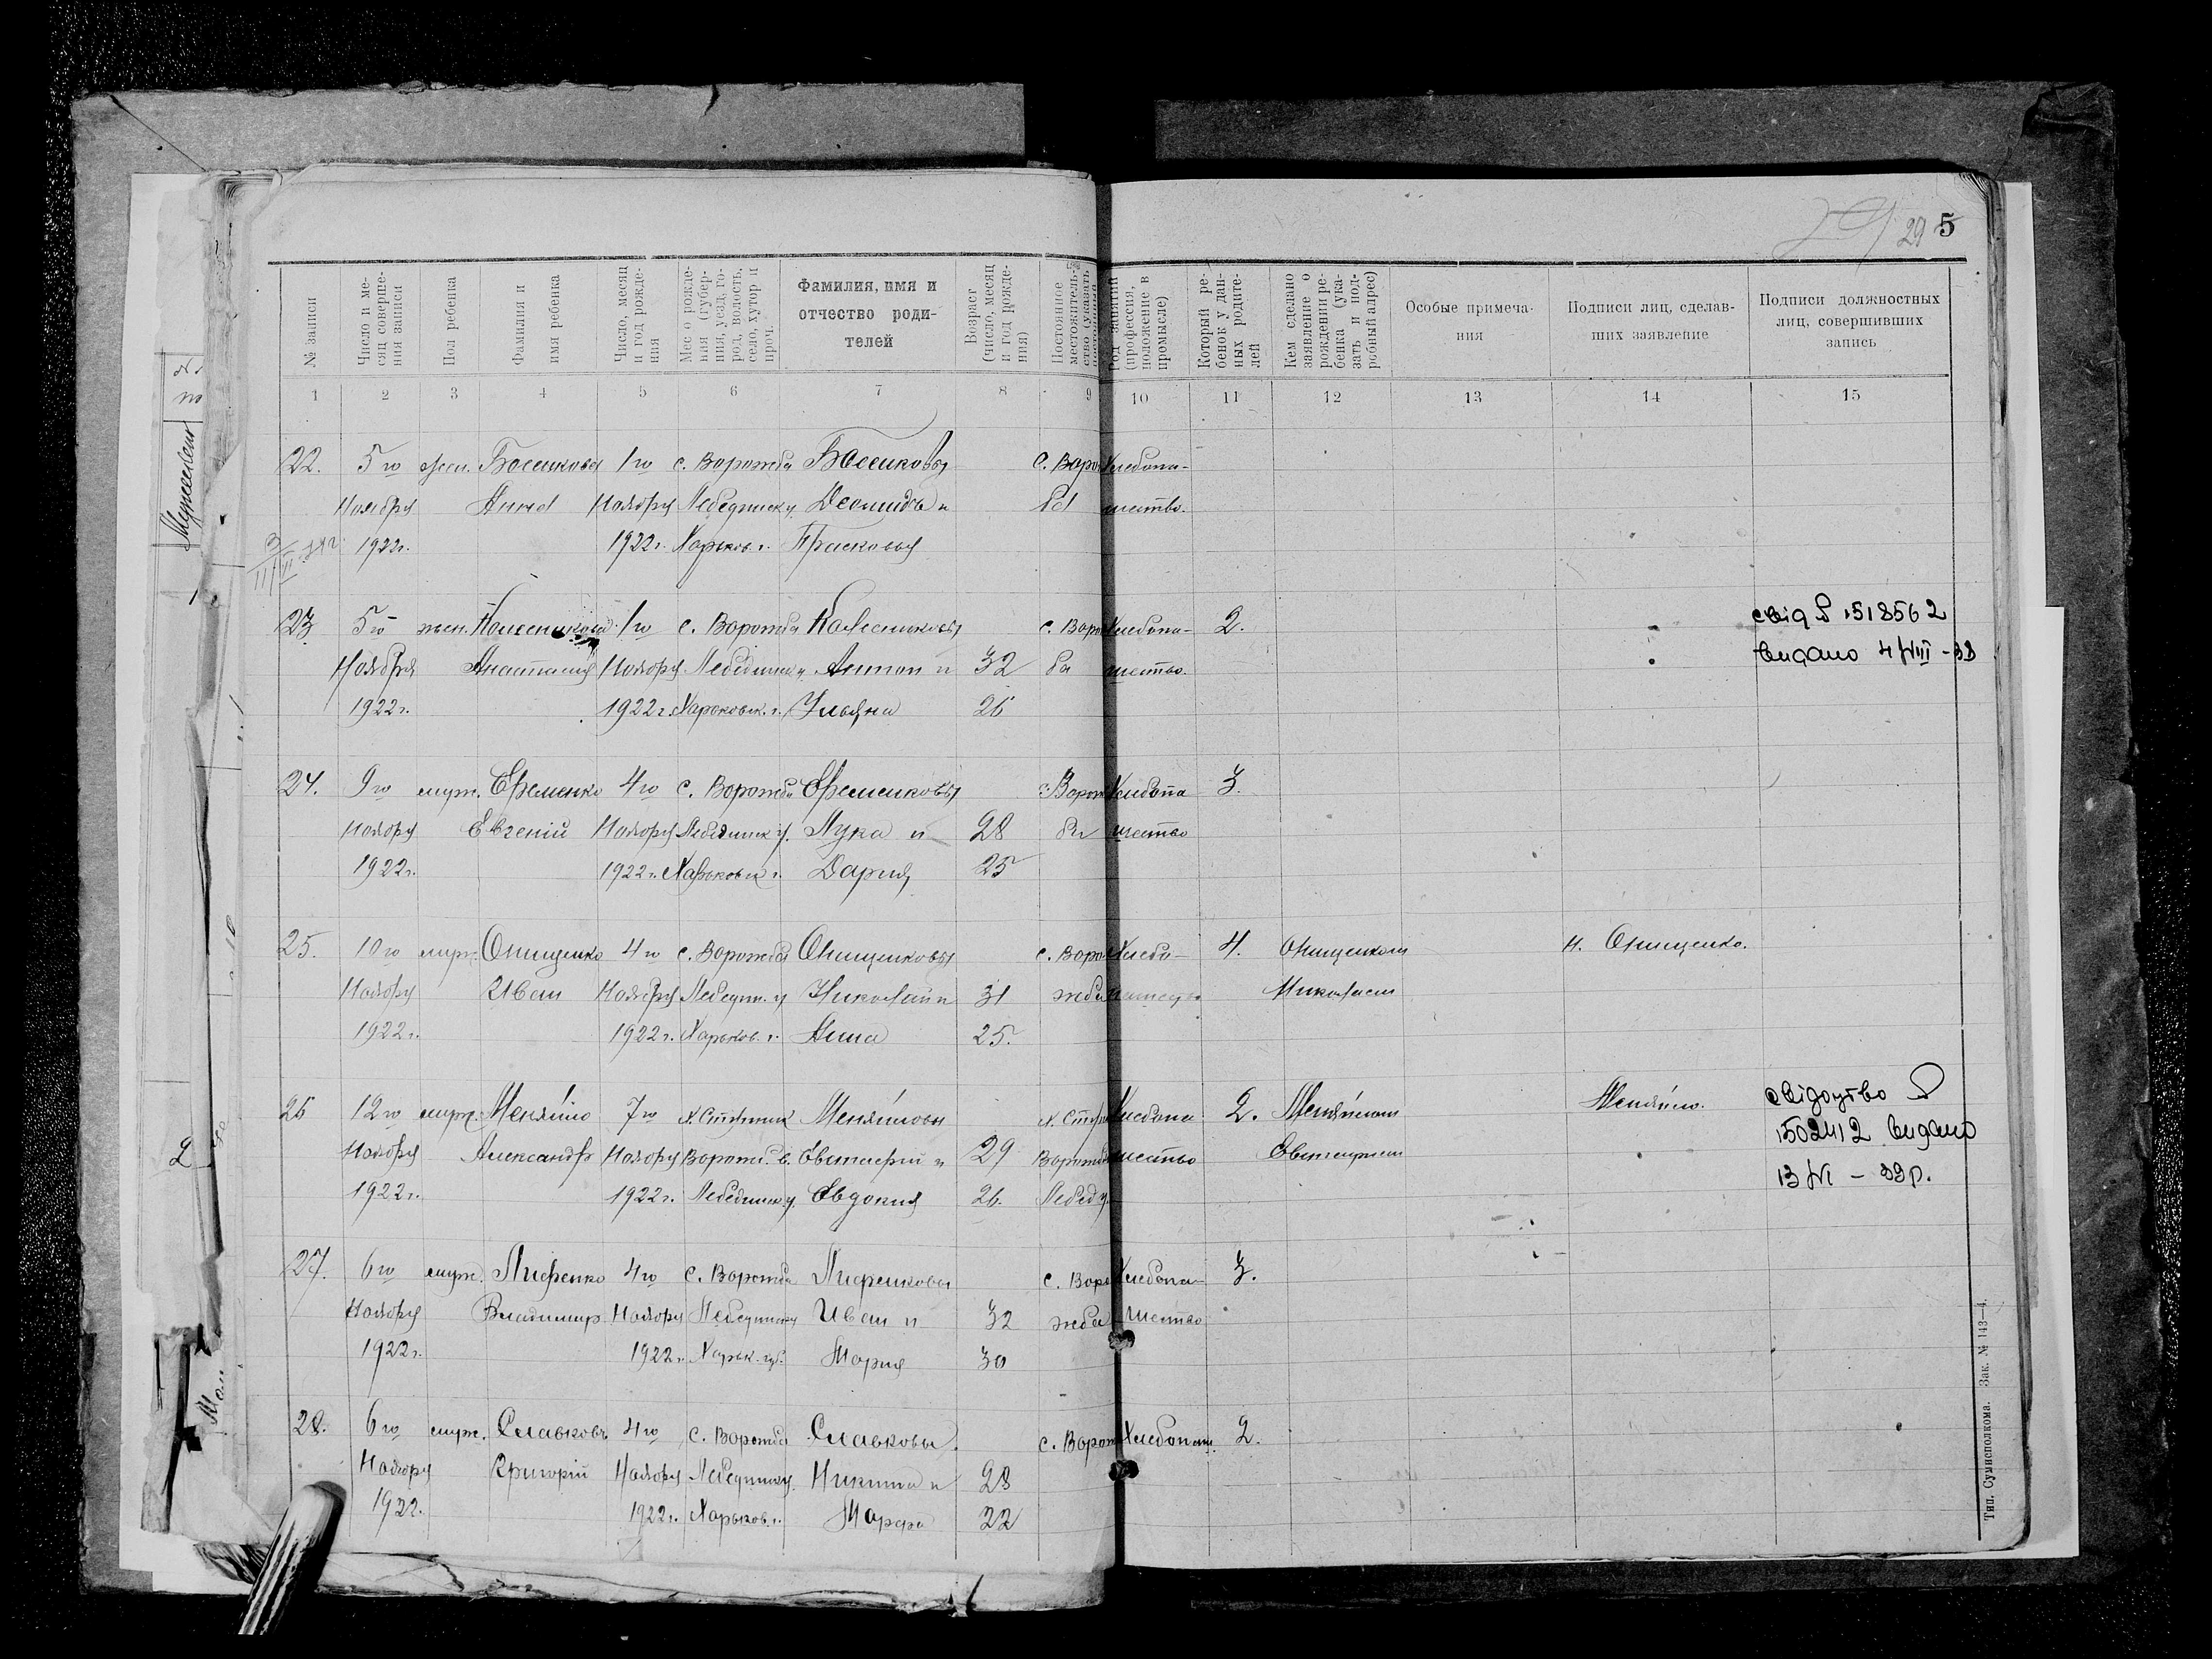 29 5
№ записи
Число и месяц совершения записи
Пол ребенка
Фамилия и имя ребенка
Число, месяц и год рождения
Мес о рождения (губерния, уезд, город, волость, село, хутор и проч.
Фамилия, имя и отчество родителей
Возраст (число, месяц и год рождения)
Постоянное местожительство (указать
Род занятий (профессия, положение в промысле)
Который ребенок у данных родителей
Кем сделано заявление о рождении ребенка (указать и подробный адрес)
Особые примечания
Подписи лиц, сделавших заявление
Подписи должностных лиц, совершивших запись
1 2 3 4 5 6 7 8 9 10 11 12 13 14 15
22. 5го жен. 1го с. Ворожба с. Воро Хлебопа-
Ноября Анна Ноября Лебединск у. Леонида и ба шество.
1922г. 1922г. Харьков. г. Прасковья
23 5го жен. Колесникова 1го с. Ворожба Колесниковы с. Воро Хлебопа- 2. свід № 1518562
Ноября Анастасия Ноября Лебединск у. Антон и 32 ба шество. видано 4/VIII - 33
1922г. 1922г. Харьковск. г. Ульяна 26
24. 9го муж. Еременко 4го с. Ворожба Еременковы Ворож Хлебопа 3.
Ноября Евгеній Ноября Лебединск у. Лука и 28 ба шество
1922г. 1922г. Харьковск г. Дария 25
25. 10го муж. Онищенко 4го с. Ворожба Онищенковы с. Воро Хлебо- 4. Онищенком Н. Онищенко.
Ноября Иван Ноября Лебедин. у Николай и 31 жба Николаем
1922г. 1922г. Харьков. г. Анна 25.
26 12го муж. Меняйло 7го х. Меняйловы х. Хлебопа 2. Меняйлом Меняйло. свідоцтво №
Ноября Александр Ноября Ворожб. в. Евстафий и 29 шество Евстафием 1502412 видано
1922г. 1922г. Лебединск у. Евдокия 26. Лебед у. 13/VI - 33р.
27. 6го муж. 4го с. Ворожба с. Воро Хлебопа- 3.
Ноября Владимир Ноября Лебединск у Иван и 32 жба шество
1922г. 1922г. Харьк. губ. Мария 30
28. 6го муж. Славков 4го с. Ворожба Славковы. с. Ворож Хлебопаш. 2.
Ноября Григорій Ноября Лебединск у. Никита и 28
1922. 1922г. Харьков. г. Марфа 22
Тип. Сумисполкома. Зак. № 143—4.